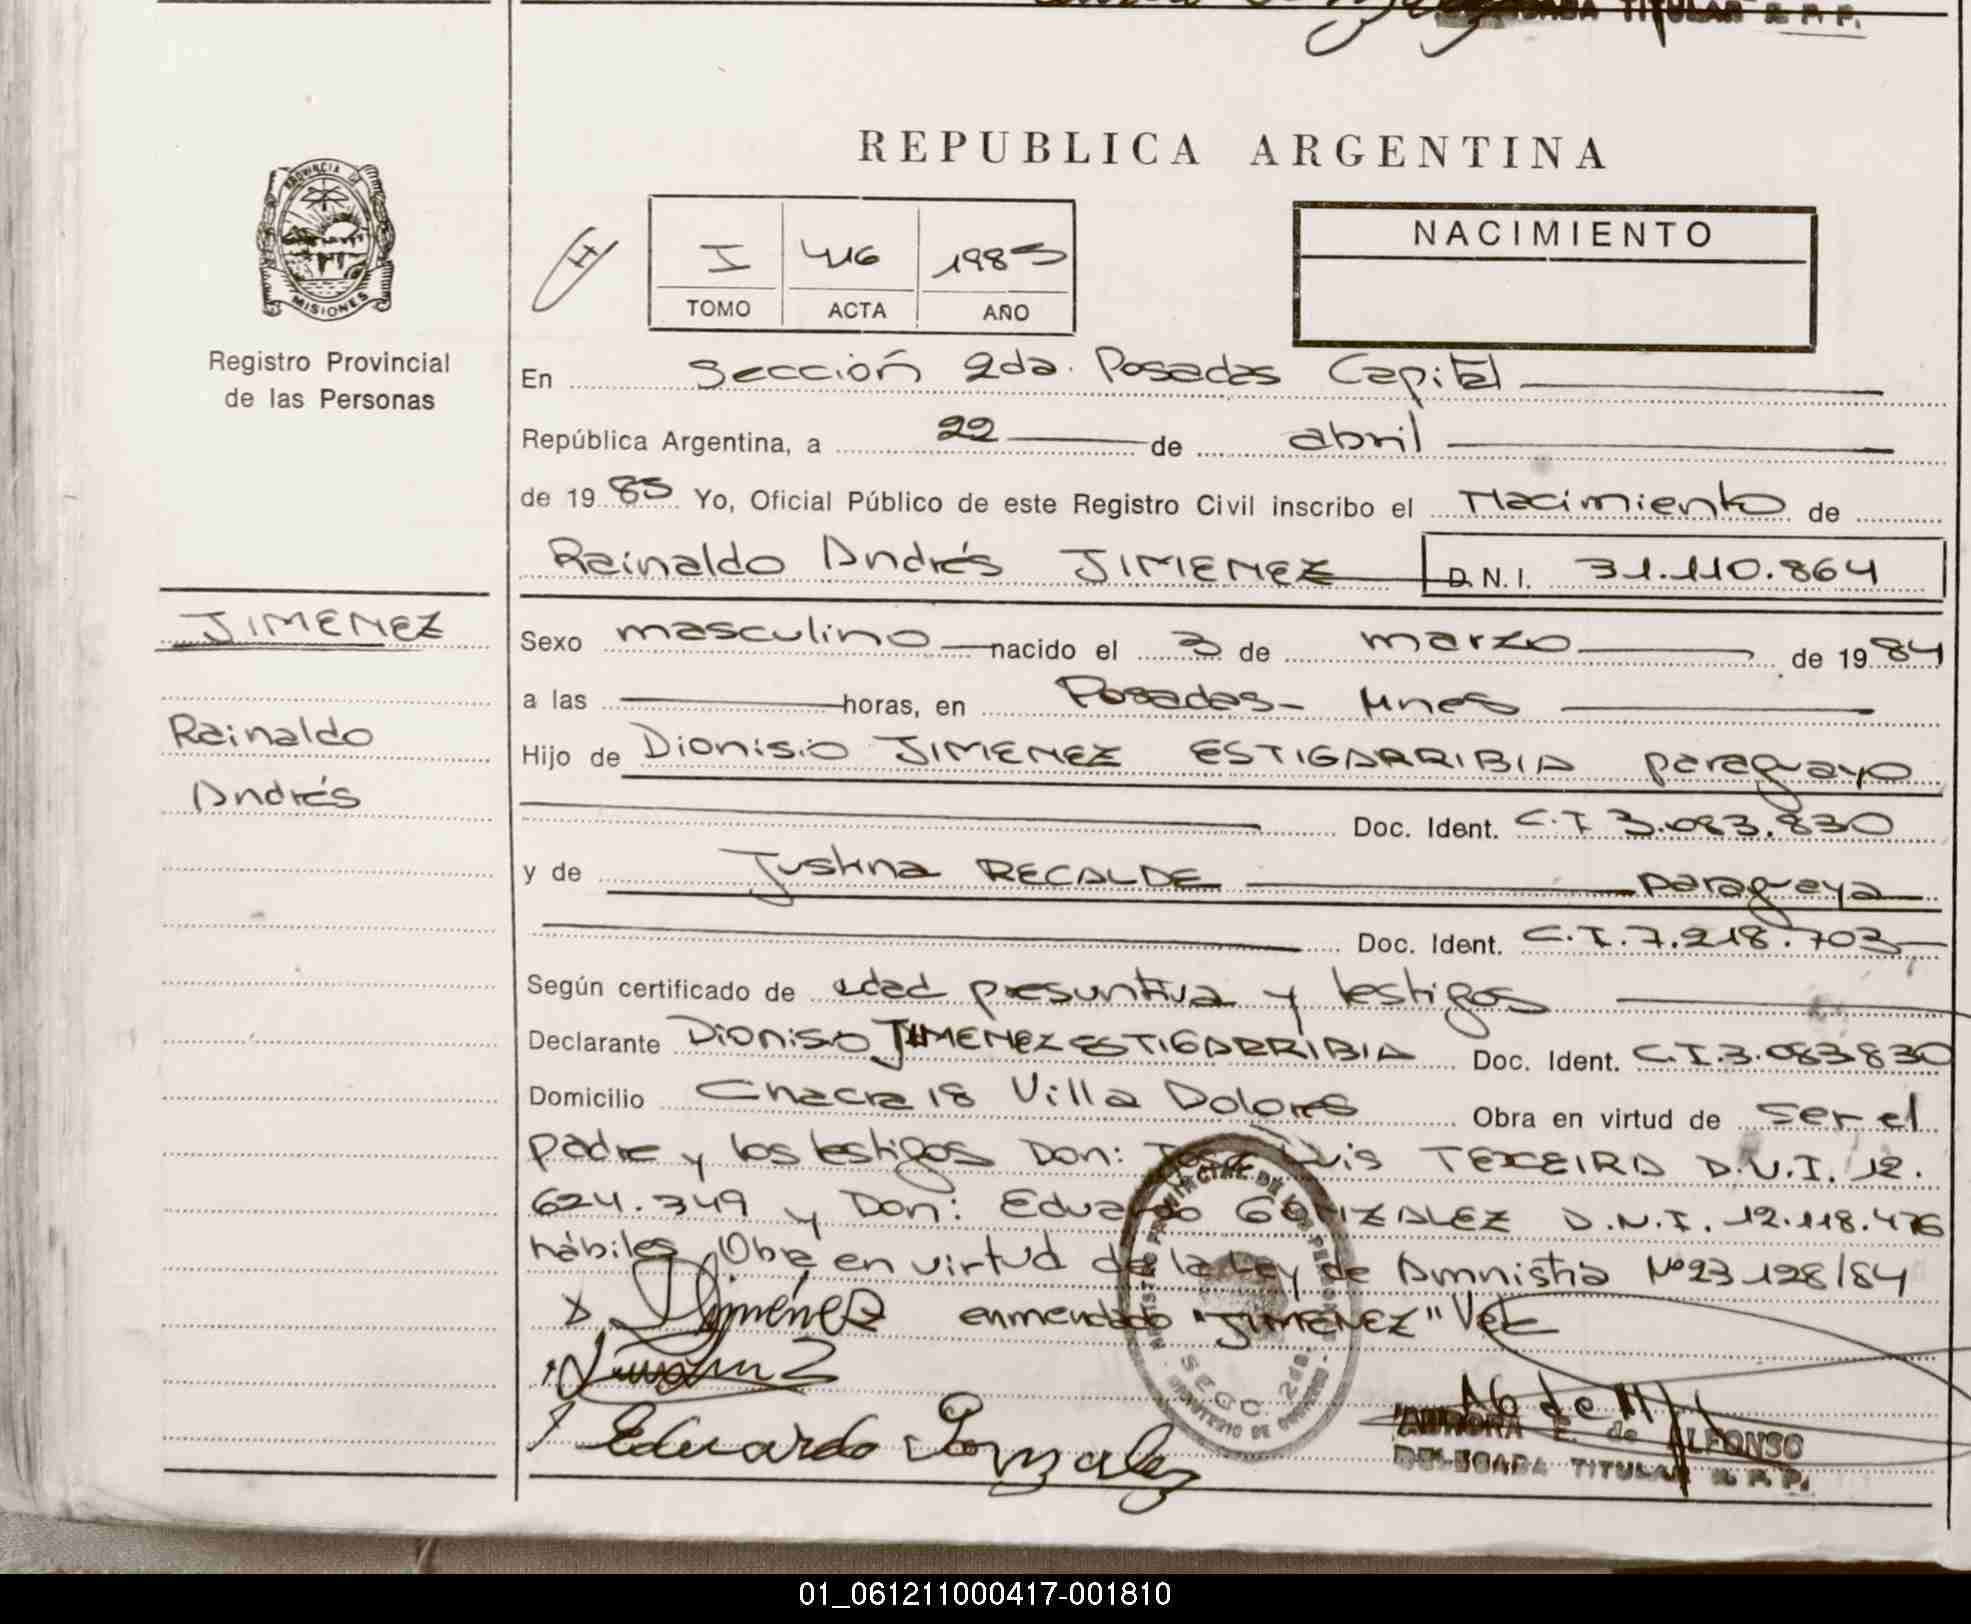 TITULAR R. P. P.
REPUBLICA ARGENTINA
PROVINCIA DE
MISIONES
Registro Provincial
de las Personas
H
I 416 1985
TOMO ACTA AÑO
NACIMIENTO
En Sección 2da. Posadas Capital
República Argentina, a 22 de abril
de 1985 Yo, Oficial Público de este Registro Civil inscribo el Nacimiento de
Rainaldo Andrés JIMENEZ D.N.I. 31.110.864
JIMENEZ
Rainaldo
Andrés
Sexo masculino nacido el 3 de marzo de 1984
a las horas, en Posadas - Mnes
Hijo de Dionisio JIMENEZ ESTIGARRIBIA paraguayo
Doc. Ident. C.I 3.083.830
y de Justina RECALDE paraguaya
Doc. Ident. C.I. 7.218.703
Según certificado de edad presuntiva y testigos
Declarante Dionisio JIMENEZ ESTIGARRIBIA Doc. Ident. C.I.3.083830
Domicilio Chacra 18 Villa Dolores Obra en virtud de ser el
padre y los testigos Don: José Luis TEXEIRA D.N.I. 12.
624.349 y Don: Eduardo GONZALEZ D.N.I. 12.118.476
hábiles Obra en virtud de la Ley de Amnistia Nº 23128/84
D Jiménez enmendado "JIMENEZ" Vale
Eduardo Gonzalez
SECC. 2da.
AURORA E. de ALFONSO
DELEGADA TITULAR R. P. P.
01_061211000417-001810